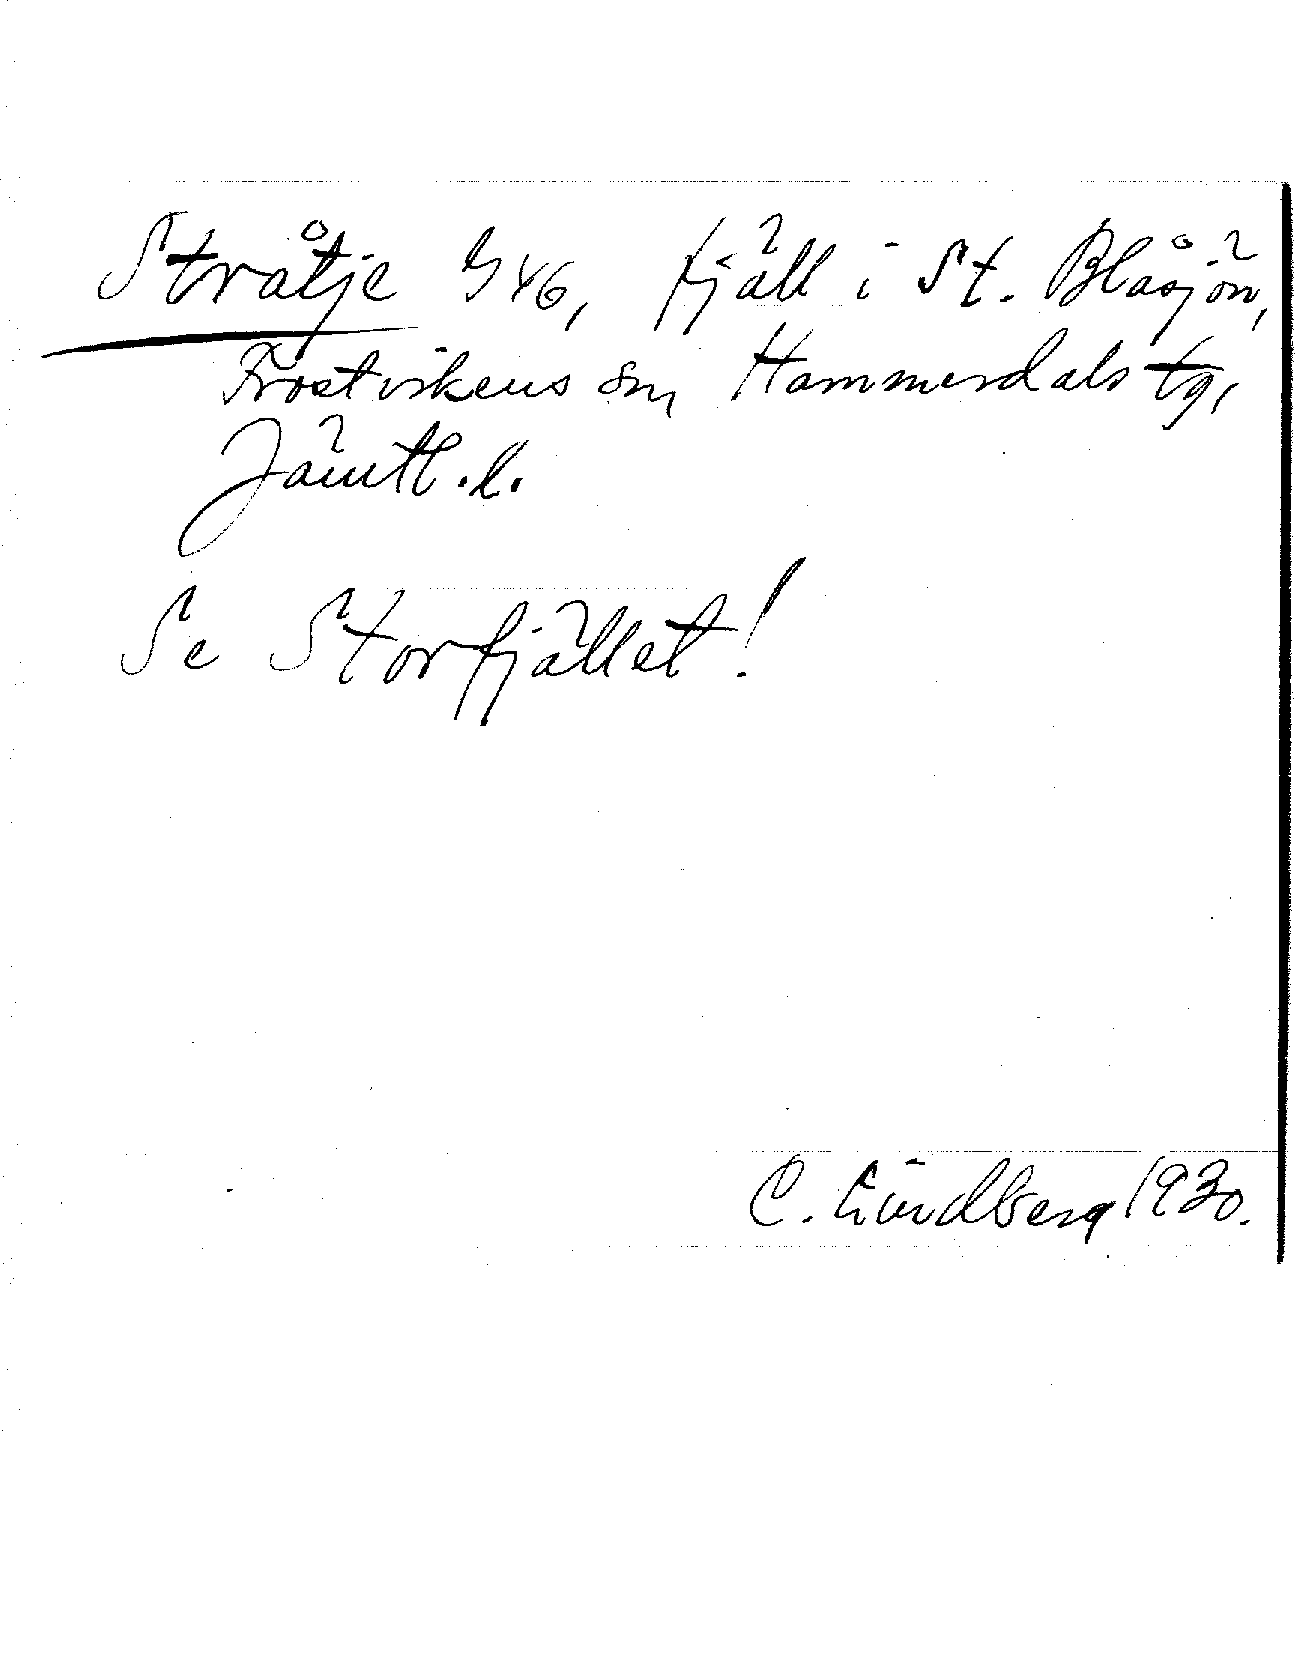 Stråtje 946, fjäll i St. Blåsjön,
Frostvikens sn, Hammerdals tg,
Jämtl. l.
Se Storfjället!
C. Lindberg 1930.